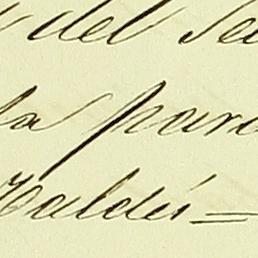 y del Se
la para
Valdés =